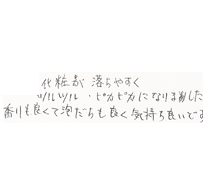 化粧が落ちやすく
ツルツル・ピカピカになりました
香りも良くて泡だちも良く気持ち良いです